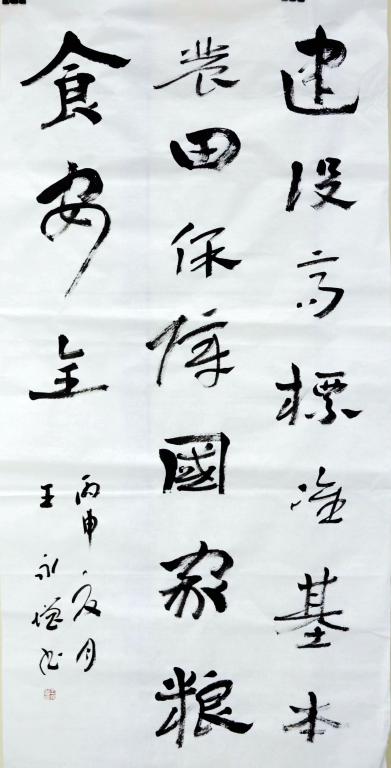 建设高標准基本
農田保障國家粮
食安全
丙申之夏月
王永增书